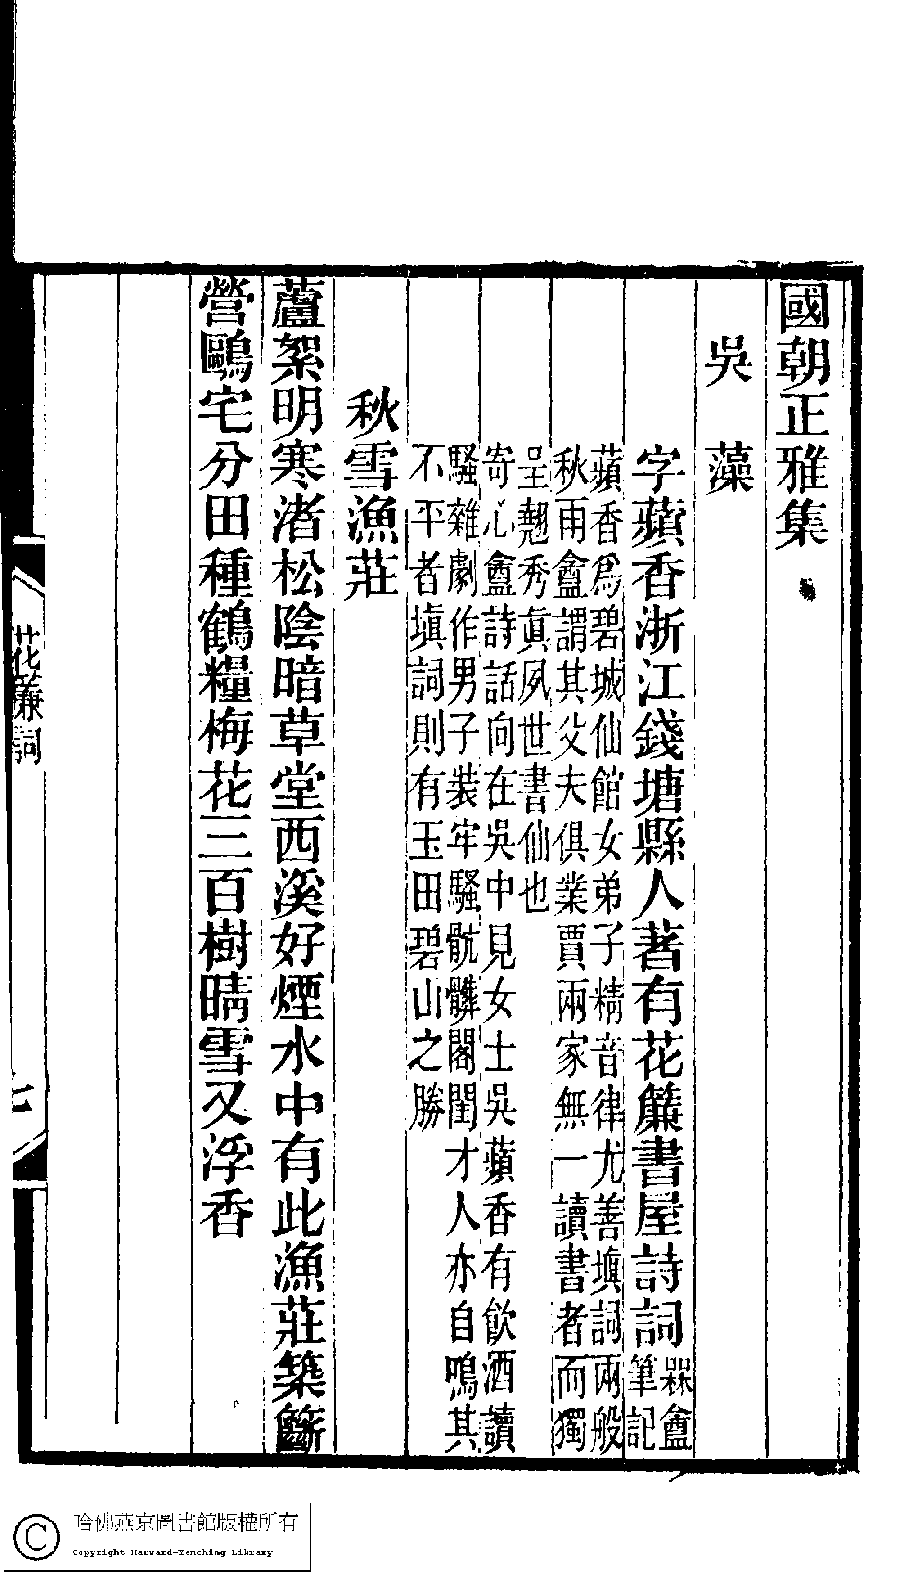 國朝正雅集
吳　藻
字蘋香浙江錢塘縣人著有花簾書屋詩詞槑盦筆記
蘋香爲碧城仙館女弟子精音律尤善塡詞兩般
秋雨盦謂其父夫俱業賈兩家無一讀書者而獨
呈翹秀眞夙世書仙也
寄心盦詩話向在吳中見女士吳蘋香有飲酒讀
騷雜劇作男子裝牢騷骯髒閣閨才人亦自鳴其
不平者塡詞則有玉田碧山之勝
秋雪漁莊
蘆絮明寒渚松陰暗草堂西溪好煙水中有此漁莊築籪
營鷗宅分田種鶴糧梅花三百樹晴雪又浮香
花簾詞
七
哈佛燕京圖書館版權所有
Copyright Harvard-Yenching Library